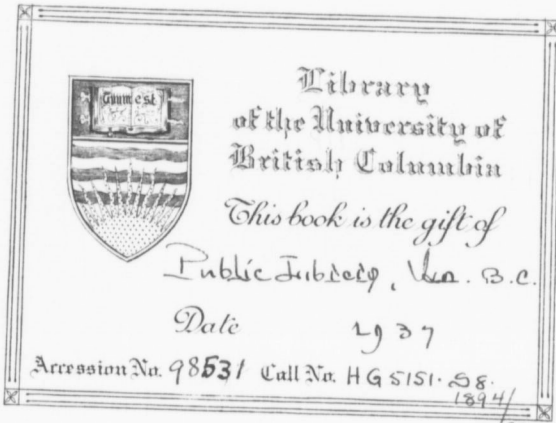 Tuum est
Library
of the University of
British Columbia
This book is the gift of
Public Library, Van. B.C.
Date 1937
Accession No. 98531 Call No. HG5151. S8.
1894/